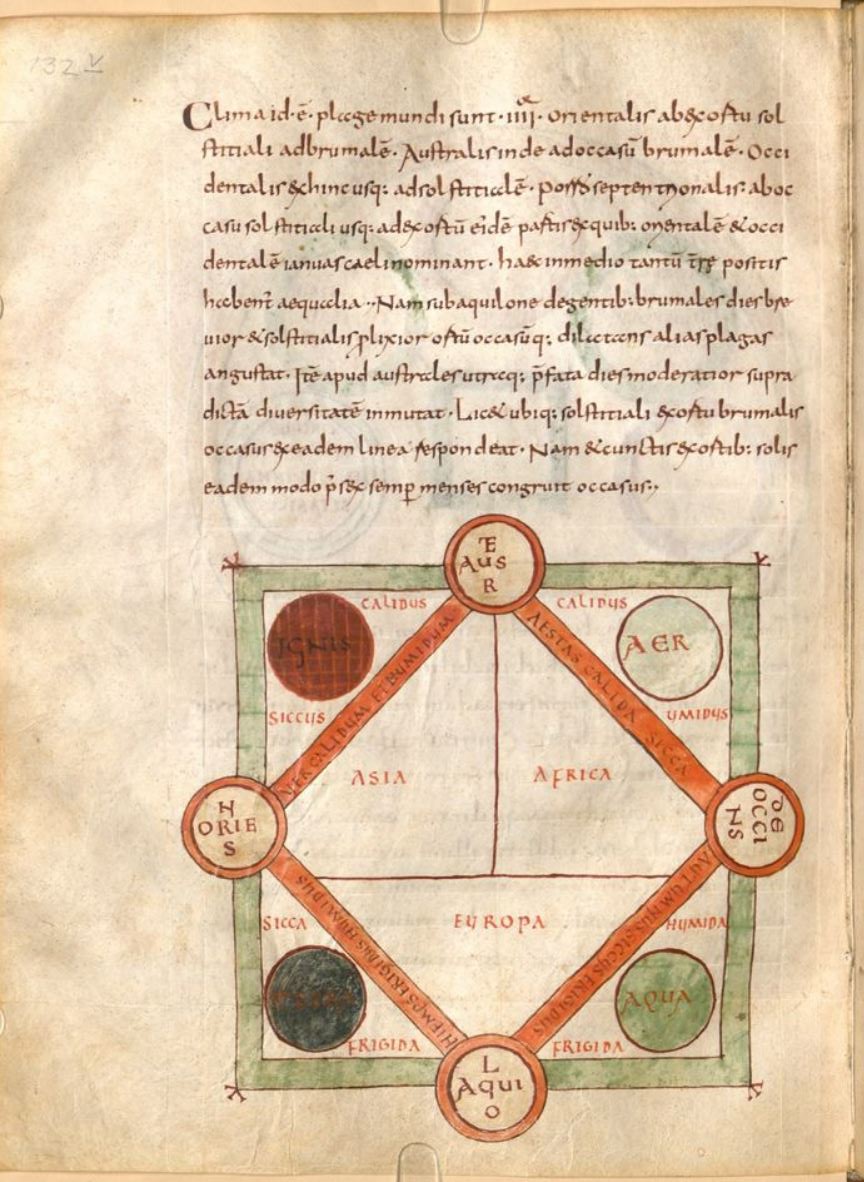 132 v
Clima id·ē· plagae mundi sunt· iiii· orientalis ab exortu sol
stitiali ad brumalē· Australis inde ad occasū brumalē· Occi
dentalis & hinc usq: ad solstitialē· Porrō septentrionalis: ab oc
casu solstitiali usq: ad exortū eidē partis ex quib: orientalē & occi
dentalē ianuas caeli nominant· in medio tantū positis
habent aequalia·· Nam sub aquilone degentib: brumales dies bre
uior & solstitialis plixior ortū occasūq: dilatans alias plagas
angustat· Itē apud australes utraq: p̄fata dies moderatior supra
dictā diversitatē inmutat· Lic& ubiq: solstitiali exortu brumalis
occasus ex eadem linea respondeat· Nam & cunctis exortib: solis
eadem modo semp menses congruit occasus··
AUSTER
CALIDUS
CALIDUS
IGNIS
AER
VER CALIDUM ET HUMIDUM
AESTAS CALIDA SICCA
SICCUS
UMIDUS
ASIA
AFRICA
ORIENS
OCCIDENS
SICCA
EUROPA
HUMIDA
HIEMPS FRIGIDUS HUMIDUS
AUTUMNUS SICCUS FRIGIDUS
AQUA
FRIGIDA
FRIGIDA
AQUILO